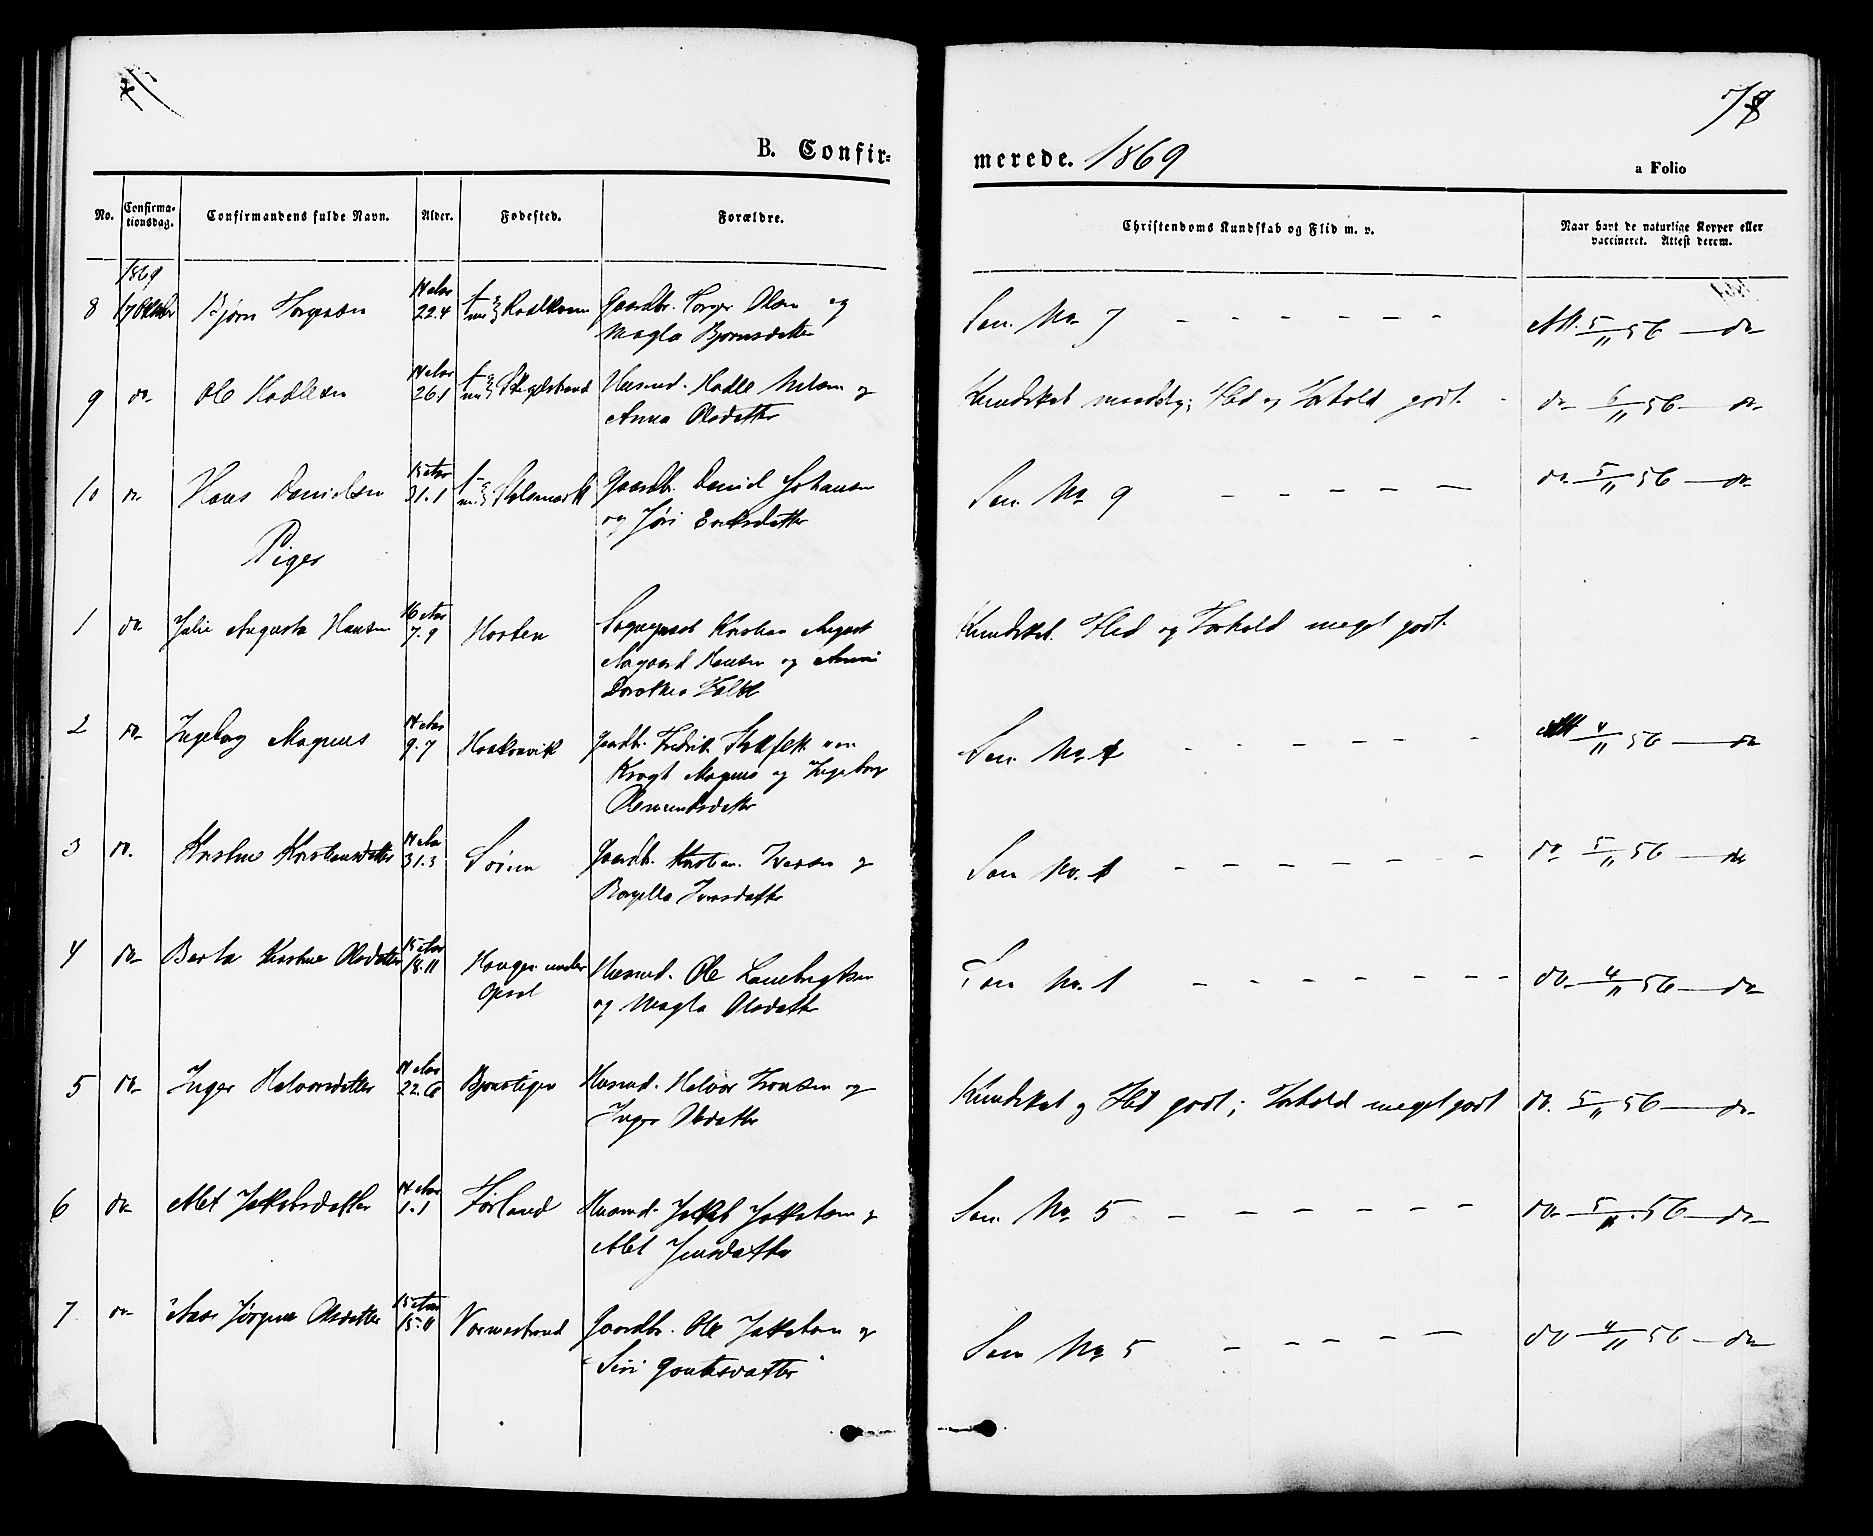 B. Confir-
merede. 1869
78
a Folio
No.
Confirma-
tionsdag.
Confirmandens fulde Navn.
Alder.
Fødested.
Forældre.
Christendoms Kundskab og Flid m. v.
Naar havt de naturlige Kopper eller
vaccineret. Attest derom.
1869
8 Bjørn 14 Aar 22.4 Gaardbr. Olsen og
Magla Bjørnsdatter
Som No 7 - - - - - -
Att. 5/11 56 — do
9 do Ole 14 Aar 26.1 Husmd. og
Anna Olsdatter
Kundskab Flid og Forhold godt
do 6/11 56 — do
10 do Hans Danielsen 15 Aar 31.1 Gaardbr. Daniel Johansen
og Jøri Eriksdatter
Som No 9 - - - - -
do 5/11 56 — do
Piger
1 do Julie Augusta Hansen 16 Aar 7.9 Horten Sognepræst Kristian August
Aagaard Hansen og
Dorothea
Kundskab. Flid og Forhold meget godt
2 do Ingeborg Magnus 14 Aar 9.7 Haakonvik Gaardbr. Fredrik von
Krogh Magnus og Ingeborg
Som No 1 - - - - - -
Att 4/11 56 — do
3 do. Kristine Kristensdatter 14 Aar 31.3 Gaardbr. Kristen Iversen og
Som No. 1 - - - - - - -
do 5/11 56 — do
4 do Berta Kirstine Olsdatter 15 Aar 18.11 Haugen under
Opsal
Husmd. Ole
og Magla Olsdatter
Som No. 1 - - - - - - -
do 4/11 56 — do
5 do Inger Halvorsdatter 14 Aar 22.6 Husmd. Halvor og
Inger Olsdatter
Kundskab og Flid godt; Forhold meget godt
do. 5/11 56 — do
6 do Alet Jakobsdatter 14 Aar 1.1 Førland Husmd. Jakob Jakobsen og
Alet Jensdatter
Som No 5 - - - - - -
do 5/11 56 — do
7 do Jørgine Olsdatter 15 Aar 15.11 Gaardbr. Ole Jakobsen og
Siri
Som No 5 - - - - -
do 4/11 56 — do